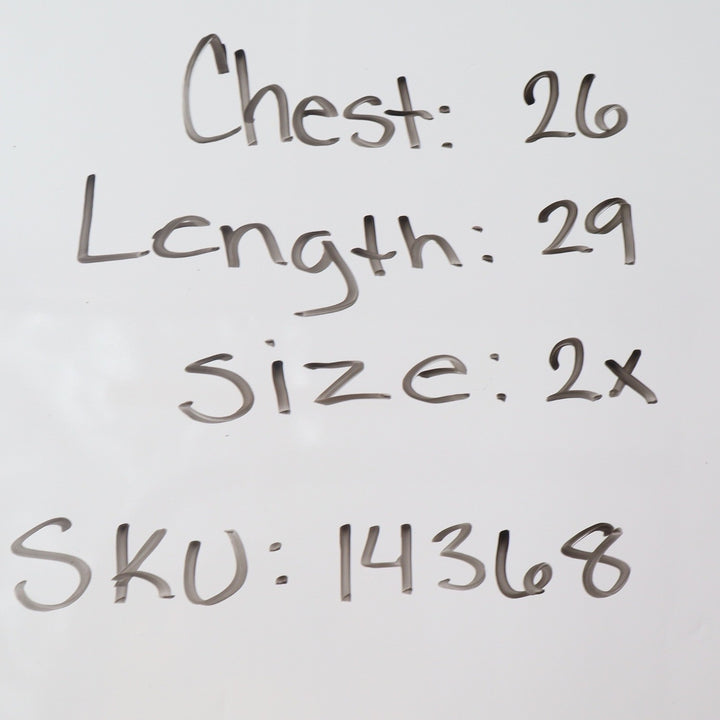 Chest: 26
Length: 29
Size: 2x
SKU: 14368